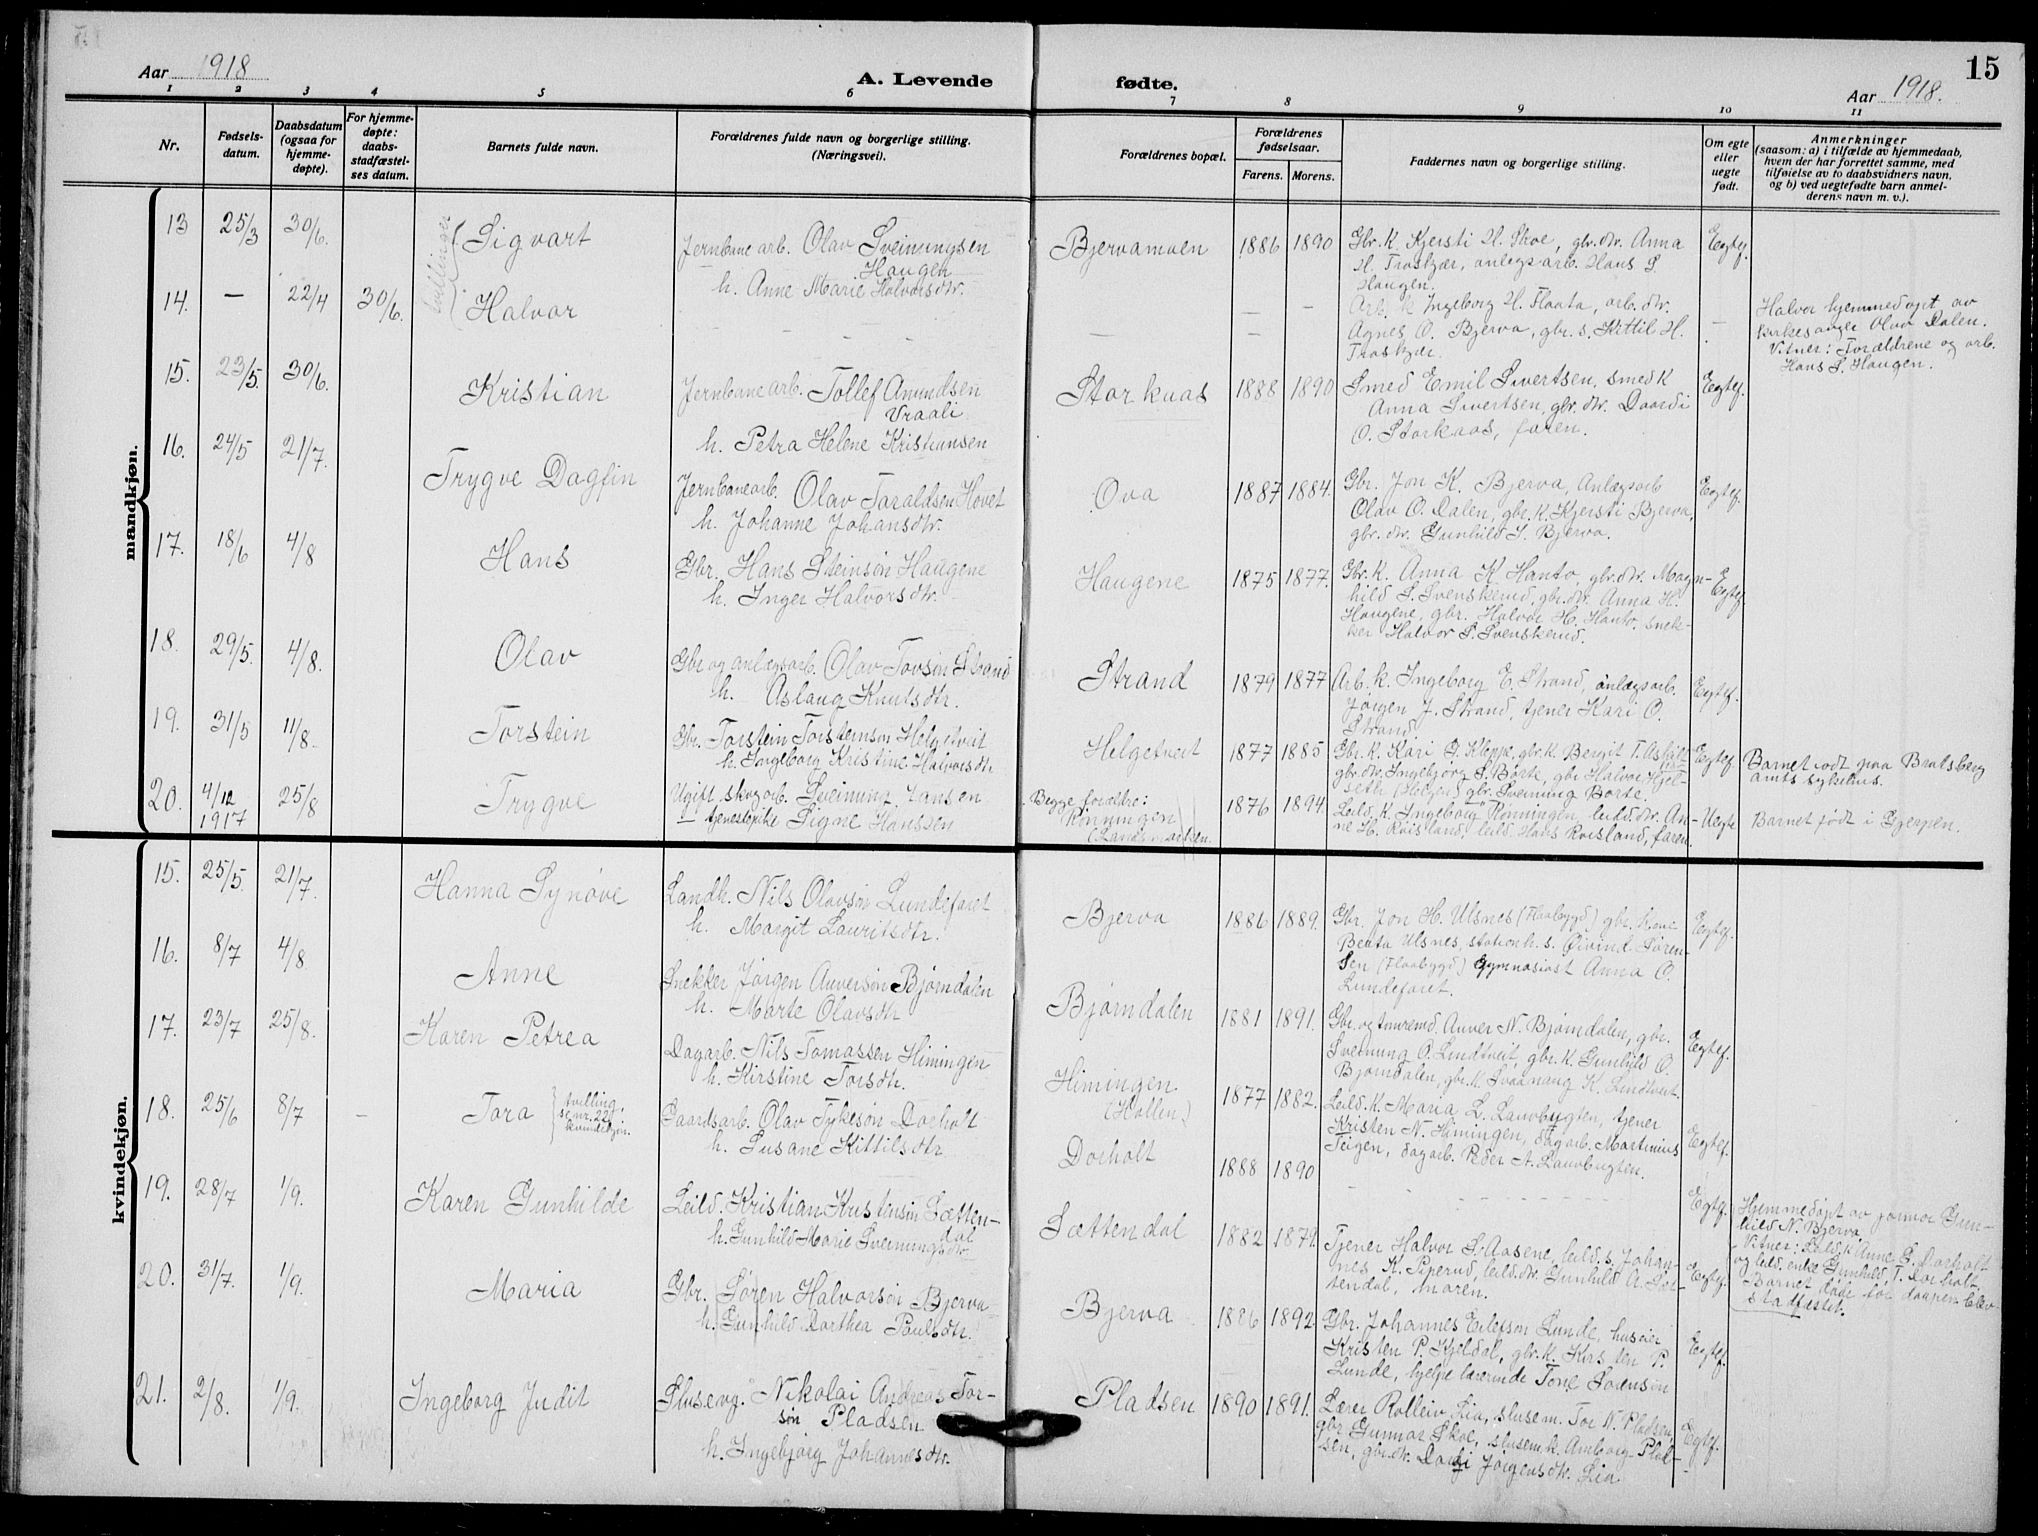 Aar 1918
A. Levende fødte.
Aar 1918.
15
1 2 3 4 5 6 7 8 9 10 11
Nr.
Fødsels-
datum.
Daabsdatum
(ogsaa for
hjemme-
døpte).
For hjemme-
døpte:
daabs-
stadfæstel-
ses datum.
Barnets fulde navn.
Forældrenes fulde navn og borgerlige stilling.
(Næringsvei).
Forældrenes bopæl.
Forældrenes
fødselsaar.
Farens. Morens.
Faddernes navn og borgerlige stilling.
Om egte
eller
uegte
født.
Anmerkninger
(saasom: a) i tilfælde av hjemmedaab,
hvem der har forrettet samme, med
tilføielse av to daabsvidners navn,
og b) ved uegtefødte barn anmel-
derens navn m. v.).
mandkjøn.
13 25/3 30/6. tvillinger Sigvart
Jernbanearb. Olav Sveinungsen
Haugen
h. Anne Marie Halvorsdtr.
Bjervamoen 1886 1890
Gbr. k. Kjersti H. Skoe, gbr. dtr. Anna
H. Traskjær, anlægsarb. Hans S.
Haugen.
Egtef.
14. — 22/4 30/6. Halvor
— — —
Arb. k. Ingeborg H. Flaata, arb. dtr.
Agnes O. Bjerva, gbr. s. Kittil H.
Traskjær.
—
Halvor hjemmedøpt av
kirkesanger Olav Dalen.
Vitner: Forældrene og arb.
Hans S. Haugen.
15. 23/5. 30/6. Kristian
Jernbanearb. Tollef Amundsen
Vraali
h. Petra Helene Kristiansen
Storkaas 1888 1890
Smed Emil Sivertsen, smed k
Anna Sivertsen, gbr. dtr. Daardi
O. Storkaas, faren.
Egtef.
16. 24/5 21/7. Trygve Dagfin
Jernbanearb. Olav Taraldsen Hovet
h. Johanne Johansdtr.
Ova 1887 1884.
Gbr. Jon K. Bjerva, Anlægsarb
Olav O. Dalen, gbr. k. Kjersti Bjerva,
gbr. dtr. Gunhild S. Bjerva.
Egtef.
17. 18/6 4/8 Hans
Gbr. Hans Steinsøn Haugene
h. Inger Halvorsdtr.
Haugene 1875 1877.
Gbr. k. Anna K. Hanto, gbr. dtr. Magn-
hild S. Svenskerud, gbr. dtr. Anna H.
Haugene, gbr. Halvor H. Hanto, snek-
ker Halvor S. Svenskerud.
Egtef.
18. 29/5. 4/8. Olav
Gbr. og anlægsarb. Olav Tovsøn Strand
h. Aslaug Knutsdtr.
Strand 1879 1877
Arb. k. Ingeborg E. Strand, anlægsarb.
Jørgen J. Strand, tjener Kari O.
Strand.
Egtef.
19. 31/5 11/8. Torstein
Gbr. Torstein Torsteinsøn Helgetveit
h. Ingeborg Kristine Halvorsdtr.
Helgetveit 1877 1885
Gbr. k. Kari J. Kleppe, gbr. k. Bergit T.
gbr. dtr. Ingebjørg S. Børte, gbr. Halvor Hjel-
seth gbr. Sveinung Børte.
Egtef.
Barnet født paa Bratsberg
amts sykehus.
20. 4/12 1917 25/8 Trygve
Ugift skogarb. Sveinung Hansen
— tjenestepike Signe Hanssen
Begge forældre:
Rønningen
1876 1894.
Leild. k. Ingeborg Rønningen, leild. dtr. An-
ne H. Roisland, leild. Hans Roisland, faren.
Uegte
Barnet født i Gjerpen.
kvindekjøn.
15. 25/5. 21/7. Hanna Synøve
Landh. Nils Olavsøn Lundefaret
h. Margit Lauritsdtr.
Bjerva 1886 1889.
Gbr. Jon H. Ulsnes (Flaabygd) gbr. kone
Beata Ulsnes, stationh. s. Øivind Søren-
sen (Flaabygd) gymnasiast Anna O.
Lundefaret.
Egtef.
16. 8/7 4/8 Anne
Snekker Jørgen Anversøn Bjørndalen
h. Marte Olavsdtr
Bjørndalen 1881 1891.
Gbr. og tømremd. Anver N. Bjørndalen, gbr.
Sveinung O. Lindtveit, gbr. k. Gunhild O.
Bjørndalen, gbr. k. Svaanaug K. Lindtveit.
Egtef.
17. 23/7 25/8. Karen Petrea
Dagarb. Nils Tomassen Himingen
h. Kirstine Torsdtr.
Himingen
(Hollen)
1877 1882.
Leild. k. Maria L. Lauvbugten, tjener
Kristen N. Himingen, dagarb. Martinius
Teigen, dagarb. Peder A. Lauvbugten.
Egtef.
18. 25/6 8/7 — Tora tvilling.
se nr. 22
kvindekjøn.
Gaardsarb. Olav Tykesøn Dorholt
h. Susane Kittilsdtr
Dorholt 1888 1890
— — — —
Egtef.
Hjemmedøpt av jormor Gun-
hild N. Bjerva.
Vitner: Leild. k. Anne G. Dorholt
og leild. enke Gunhild T. Dorholt.
Barnet døde før daapen blev
stadfæstet.
19. 28/7 1/9. Karen Gunhilde
Leild. Kristian Kristensøn Sætten-
dal
h. Gunhild Marie Sveinungsdtr.
Sættendal 1882 1879.
Tjener Halvor S. Aasene, leild. s. Johan-
nes K. Pjerud, leild. dtr. Gunhild A. Sæt-
tendal, moren.
Egtef.
20. 31/7. 1/9. Maria
Gbr. Søren Halvorsøn Bjerva
h. Gunhild Dorthea Paulsdtr.
Bjerva 1886 1892
Gbr. Johannes Eilefsøn Lunde, huseier
Kristen P. Kjeldal, gbr. k. Kirsten P.
Lunde, hjelpelærerinde Tone Sørensøn
Egtef.
21. 2/8. 1/9. Ingeborg Judit
Slusevg. Nikolai Andreas Tor-
søn Pladsen
h. Ingebjørg Johannesdtr.
Pladsen 1890 1891.
Lærer Rolleiv Lia, slusem. Tor N. Pladsen,
gbr. Gunnar Skoe, slusem. k. Amborg Plad-
sen, gbr. dtr. Dordi Jørgensdtr. Lia
Egtef.